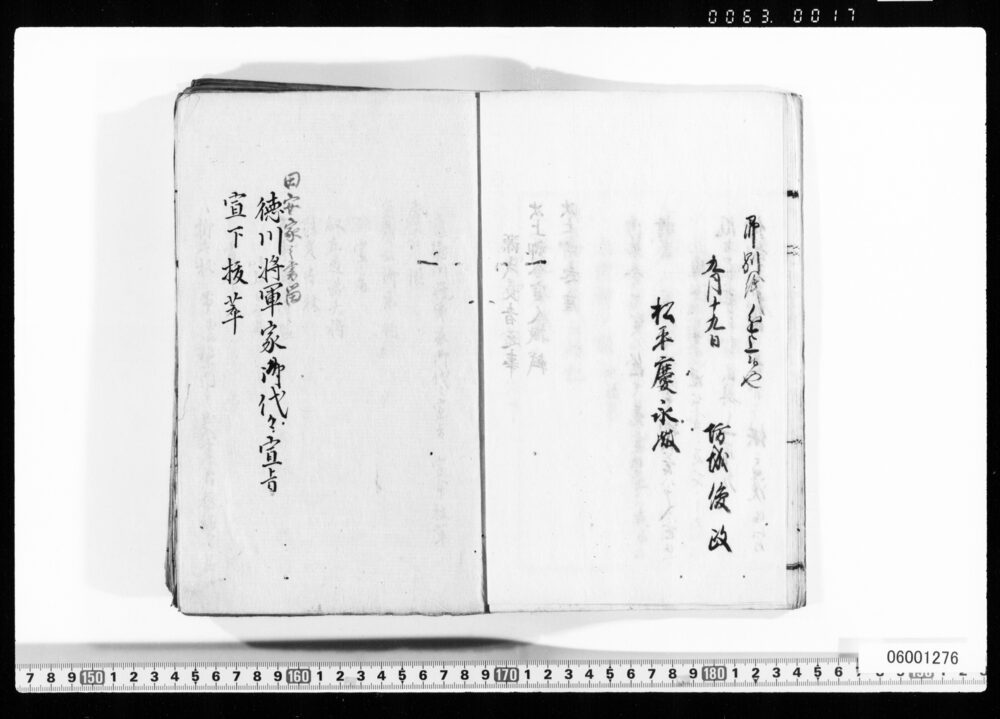 0063.0017
九月十九日
坊城俊政
松平慶永殿
田安家之書留
徳川将軍家御代々宣旨
宣下抜萃
7 8 9 150 1 2 3 4 5 6 7 8 9 160 1 2 3 4 5 6 7 8 9 170 1 2 3 4 5 6 7 8 9 180 1 2 3 4 5 6 7
06001276